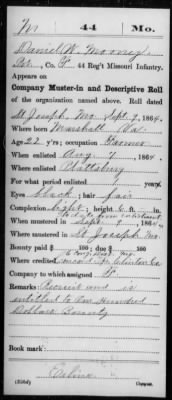 M | 44 | Mo.
Daniel W. Mooney
Pvt., Co. F, 44 Reg't Missouri Infantry.
Appears on
Company Muster-in and Descriptive Roll
of the organization named above. Roll dated
St Joseph, Mo Sept. 9, 1864.
Where born Marshall Va.
Age 22 y'rs; occupation Farmer
When enlisted Aug. 7, 1864
Where enlisted Plattsburg
For what period enlisted years.
Eyes black; hair fair
Complexion light; height 6 ft. in.
When mustered in Sept. 9, 1864
Where mustered in St. Joseph Mo.
Bounty paid $ 100; due $ 100
Where credited Clinton Co
Company to which assigned F.
Remarks: Recruit and is
entitled to One Hundred
Dollars Bounty
Book mark:
(356d) Copyist.